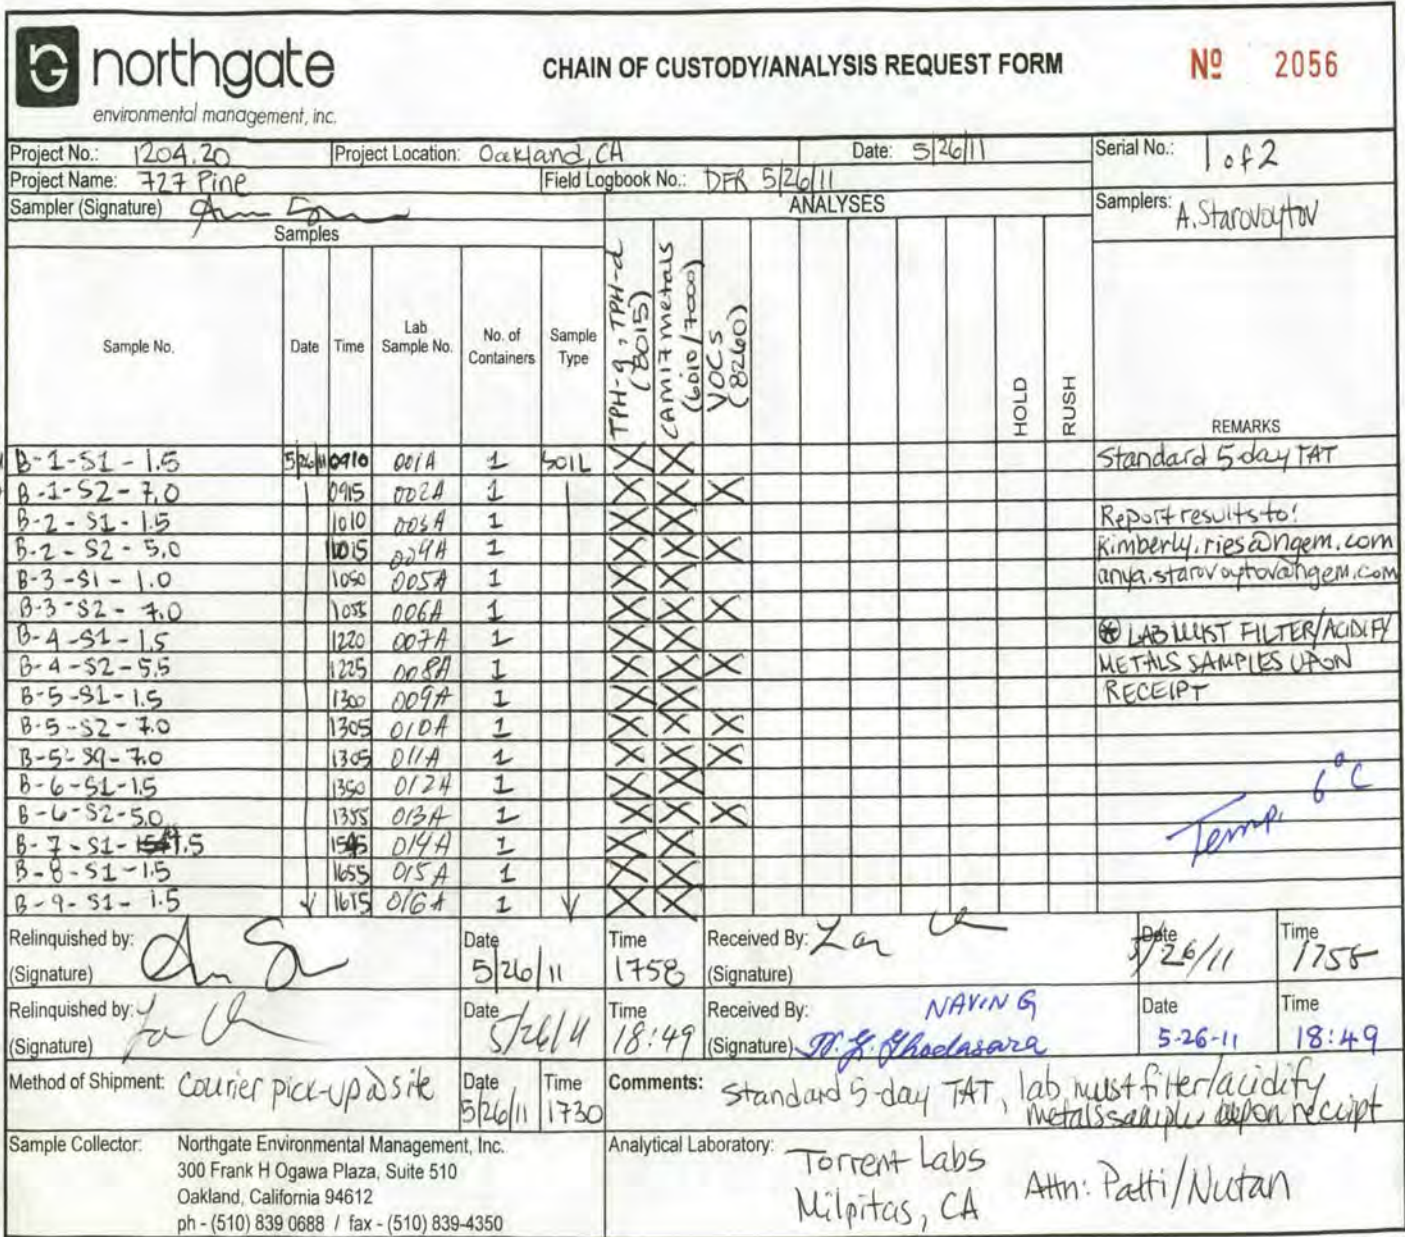 northgate
environmental management, inc.
CHAIN OF CUSTODY/ANALYSIS REQUEST FORM
Nº 2056
Project No.: 1204.20 Project Location: Oakland, CA Date: 5/26/11 Serial No.: 1 of 2
Project Name: 727 Pine Field Logbook No.: DFR 5/26/11
Sampler (Signature) ANALYSES Samplers: A. Starovoytov
Samples
Sample No. Date Time Lab Sample No. No. of Containers Sample Type TPH-g, TPH-d (8015) CAM17 metals (6010/7000) VOCs (8260) HOLD RUSH REMARKS
B-1-S1-1.5 5/26/11 0910 001A 1 SOIL X X Standard 5-day TAT
B-1-S2-7.0 0915 002A 1 X X X
B-2-S1-1.5 1010 003A 1 X X Report results to:
B-2-S2-5.0 1015 004A 1 X X X kimberly.ries@ngem.com
B-3-S1-1.0 1050 005A 1 X X anya.starovoytov@ngem.com
B-3-S2-7.0 1055 006A 1 X X X
B-4-S1-1.5 1220 007A 1 X X * LAB MUST FILTER/ACIDIFY
B-4-S2-5.5 1225 008A 1 X X X METALS SAMPLES UPON
B-5-S1-1.5 1300 009A 1 X X RECEIPT
B-5-S2-7.0 1305 010A 1 X X X
B-5-S9-7.0 1305 011A 1 X X X
B-6-S1-1.5 1350 012A 1 X X
B-6-S2-5.0 1355 013A 1 X X X
Temp. 6°C
B-7-S1-1.5 014A 1 X X
B-8-S1-1.5 1655 015A 1 X X
B-9-S1-1.5 016A 1 X X
Relinquished by: (Signature) Date 5/26/11 Time 1758 Received By: (Signature) Date 5/26/11 Time 1758
Relinquished by: (Signature) Date 5/26/11 Time 18:49 Received By: NAVIN G (Signature) N. G. Ghodasara Date 5-26-11 Time 18:49
Method of Shipment: Courier pick-up @ site Date 5/26/11 Time 1730 Comments: Standard 5-day TAT, lab must filter/acidify
metals samples upon receipt
Sample Collector: Northgate Environmental Management, Inc.
300 Frank H Ogawa Plaza, Suite 510
Oakland, California 94612
ph - (510) 839 0688 / fax - (510) 839-4350
Analytical Laboratory: Torrent Labs
Milpitas, CA
Attn: Patti/Nutan